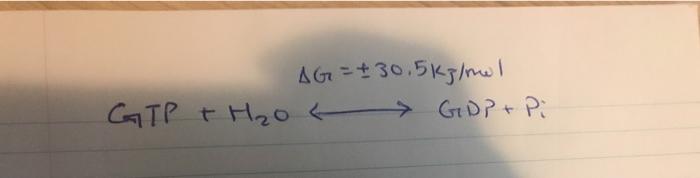 ΔG = ± 30.5 KJ/mol
GTP + H₂O ⟷ GDP + Pi